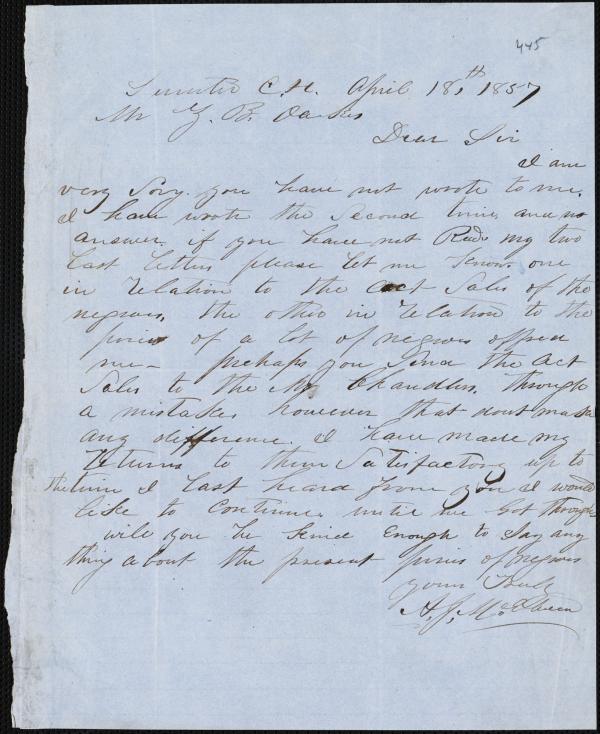 445
Sumter C.H. April 18th 1857
Mr Z. B. Oakes
Dear Sir
I am
very Sory you have not wrote to me.
I have wrote the Second time and no
answer. if you have not Recd my two
last letters please let me know. one
in relation to the act Sales of the
negroes, the other in relation to the
prices of a lot of negroes offered
me - perhaps you Send the act
Sales to the Mr Chandlers through
a mistake, however that dont make
any difference. I have made my
returns to them Satisfactory up to
the time I last heard from you I would
like to continue until we got through
will you be kind enough to Say any
thing about the present prices of negroes
yours Truly
A. J. McElveen